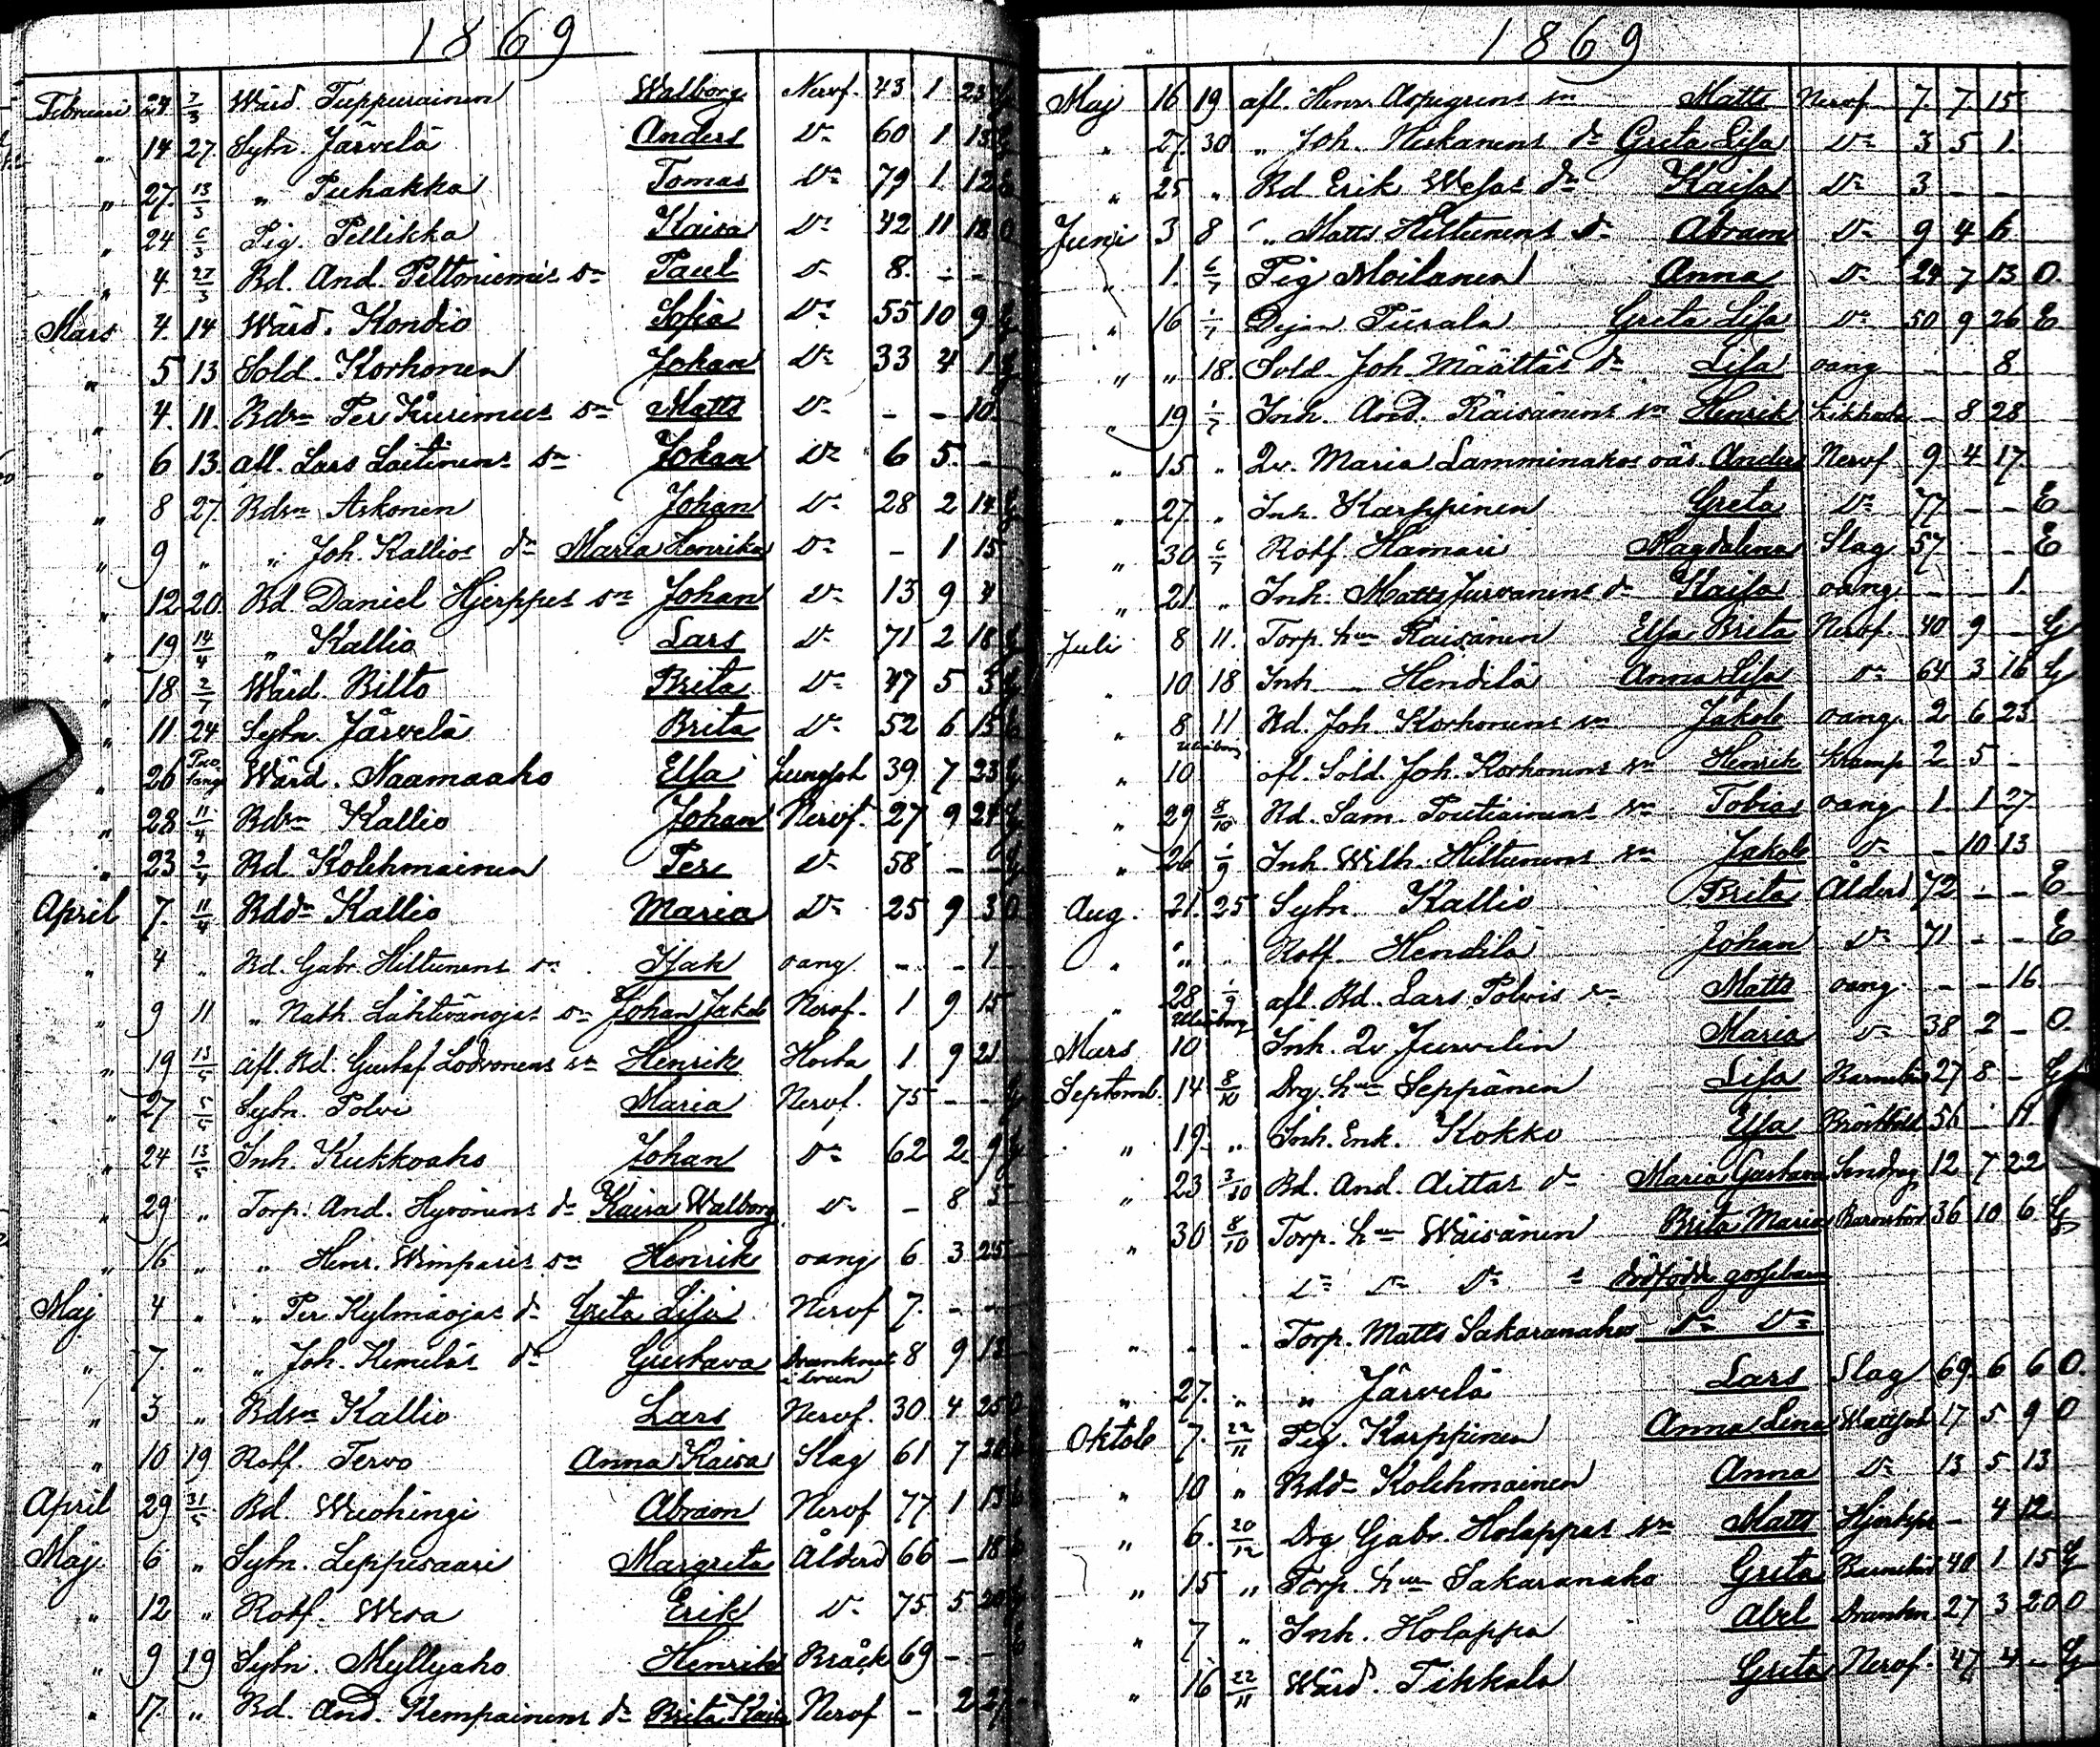 1869
Februari 24 7/3 Wärd. Tuppurainen Walborg Nervf. 43 1 23 G
" 14 27 Sytn. Järvelä Anders Do 60 1 13 G
" 27 13/3 " Puhakka Tomas Do 79 1 12 E
" 24 6/3 Pig. Pellikka Kaisa Do 42 11 18 O
" 4 27/3 Bd. And. Peltoniemis sn Paul Do 8 - -
Mars 4 14 Wärd. Kondio Sofia Do 55 10 9 G
" 5 13 Sold. Korhonen Johan Do 33 4 1 G
" 4 11 Bdsn Per Kurimus sn Matts Do - - 10
" 6 13 afl. Lars Laitinens sn Johan Do 6 5 -
" 8 27 Bdsn Askonen Johan Do 28 2 14 G
" 9 " " Joh. Kallios dr Maria Henrika Do - 1 15
" 12 20 Bd Daniel Hjerppes sn Johan Do 13 9 4
" 19 14/4 " Kallio Lars Do 71 2 18 G
" 18 2/7 Wärd. Bilto Brita Do 47 5 3 G
" 11 24 Sytn. Järvelä Brita Do 52 6 15 E
" 26 Wärd. Naamaaho Elsa Lungsot 39 7 23 G
" 28 11/4 Bdsn Kallio Johan Nervf. 27 9 24 G
" 23 2/4 Bd Kolehmainen Per Do 58 - - G
April 7 11/4 Bddr Kallio Maria Do 25 9 3 O
" 4 " Bd. Gabr. Hiltunens sn Isak oang - - 1
" 9 11 " Nath. Lähtevänojas sn Johan Jakob Nervf. 1 9 15
" 19 13/5 afl. Bd. Gustaf Lodvonens sn Henrik Hosta 1 9 21
" 27 5/5 Sytn. Polvi Maria Nervf. 75 - - G
" 24 13/5 Inh. Kukkoaho Johan Do 62 2 9 G
" 29 " Torp. And. Hyvönens dr Kaisa Walborg Do - 8 5
" 16 " " Henr. Wimparis sn Henrik oang 6 3 25
Maj 4 " " Per Kylmäojas dr Greta Lisa Nervf 7 - -
" 7 " " Joh. Kemiläs dr Gustava Drunknat i brun 8 9 12
" 3 " Bdsn Kallio Lars Nervf. 30 4 25 O
" 10 19 Rotf. Tervo Anna Kaisa Slag 61 7 26
April 29 31/5 Bd. Wuohingi Abram Nervf 77 1 13
Maj 6 " Sytn. Leppisaari Margreta Ålderd 66 - 18 E
" 12 " Rotf. Wesa Erik Do 75 5 20 G
" 9 19 Sytn. Myllyaho Henrik Bråck 69 - - E
" 17 " Bd. And. Kempainens dr Brita Kaisa Nervf - 2 27
1869
Maj 16 19 afl. Henr. Aspegrens sn Matts Nervf 7 7 15
" 27 30 " Joh. Heikanens dr Greta Lisa Do 3 5 1
" 25 " Bd Erik Wesas dr Kaisa Do 3 - -
Juni 3 8 " Matts Hiltunens sn Abram Do 9 4 6
" 1 6/7 Pig Moilanen Anna Do 24 7 13 O
" 16 1/7 Dejan Piirala Greta Lisa Do 50 9 26 E
" " 18 Sold. Joh. Määttäs dr Lisa oang - - 8
" 19 1/7 Inh. And. Räisänens sn Henrik Kikhosta - 8 28
" 15 " Qv. Maria Lamminahos oäs. Anders Nervf 9 4 17
" 27 " Inh. Karppinen Greta Do 77 - - E
" 30 6/7 Rotf. Hamari Magdalena Slag 57 - - E
" 21 " Inh. Matts Juvanens dr Kaisa oang - - 1
Juli 8 11 Torp. hun Räisänen Elsa Brita Nervf 40 9 - G
" 10 18 Inh " Hendilä Anna Lisa Do 64 3 16 G
" 8 11 Bd. Joh. Korhonens sn Jakob oang 2 6 23
" 10 Uleåborg afl. Sold. Joh. Korhonens sn Henrik Kramp 2 5 -
" 29 8/10 Bd. Sam. Poutiainens sn Tobias oang 1 1 27
" 26 1/9 Inh. Wilh. Hiltunens sn Jakob Do - 10 13
Aug. 21 25 Sytn. Kallio Brita Ålderd 72 - - E
" " " Rotf. Hendilä Johan Do 71 - - E
" 28 1/9 afl. Bd. Lars Polvis sn Matts oang - - 16
Mars 10 Uleåborg Inh. Qv Jurvelin Maria Do 38 2 - O
Septemb. 14 8/10 Drg. hun Seppänen Lisa Barnsbörd 27 8 - G
" 19 " Inh. Enk. Kokko Elsa Bröstfeb 56 - 11
" 23 3/10 Bd. And. Aittas dr Maria Gustava Sendrag 12 7 22
" 30 8/10 Torp. hun Wäisänen Brita Maria Barnsbörd 36 10 6 G
Do Do Do s dödfödde gossebarn
" " " Torp. Matts Sakaranahos Do Do
" 27 " " Järvelä Lars Slag 69 6 6 O
Oktob 7 22/11 Pig. Karppinen Anna Lena Wattsot 17 5 9 O
" 10 " Bddr Kolehmainen Anna Do 13 5 13
" 6 20/12 Drg Gabr. Holappas sn Matts - 4 12
" 15 " Torp. hun Sakaranaho Greta Barnsbörd 40 1 15 G
" 7 " Inh. Holappa Abel Drunkn. 27 3 20 O
" 16 22/11 Wärd. Tikkala Greta Nervf. 47 4 - G